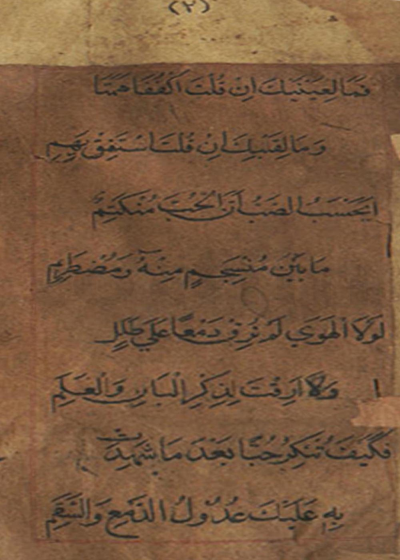 (٢)
فَمَا لِعَيْنَيْكَ اِنْ قُلْتَ اكْفُفَا هَمَتَا
وَمَا لِقَلْبِكَ اِنْ قُلْتَ اسْتَفِقْ يَهِمِ
اَيَحْسَبُ الصَّبُّ اَنَّ الْحُبَّ مُنْكَتِمٌ
مَا بَيْنَ مُنْسَجِمٍ مِنْهُ وَمُضْطَرِمِ
لَوْلَا الْهَوَي لَمْ تُرِقْ دَمْعًا عَلَي طَلَلٍ
وَلَا اَرِقْتَ لِذِكْرِ الْبَانِ وَالْعَلَمِ
فَكَيْفَ تُنْكِرُ حُبًّا بَعْدَ مَا شَهِدَتْ
بِهِ عَلَيْكَ عُدُولُ الدَّمْعِ وَالسَّقَمِ